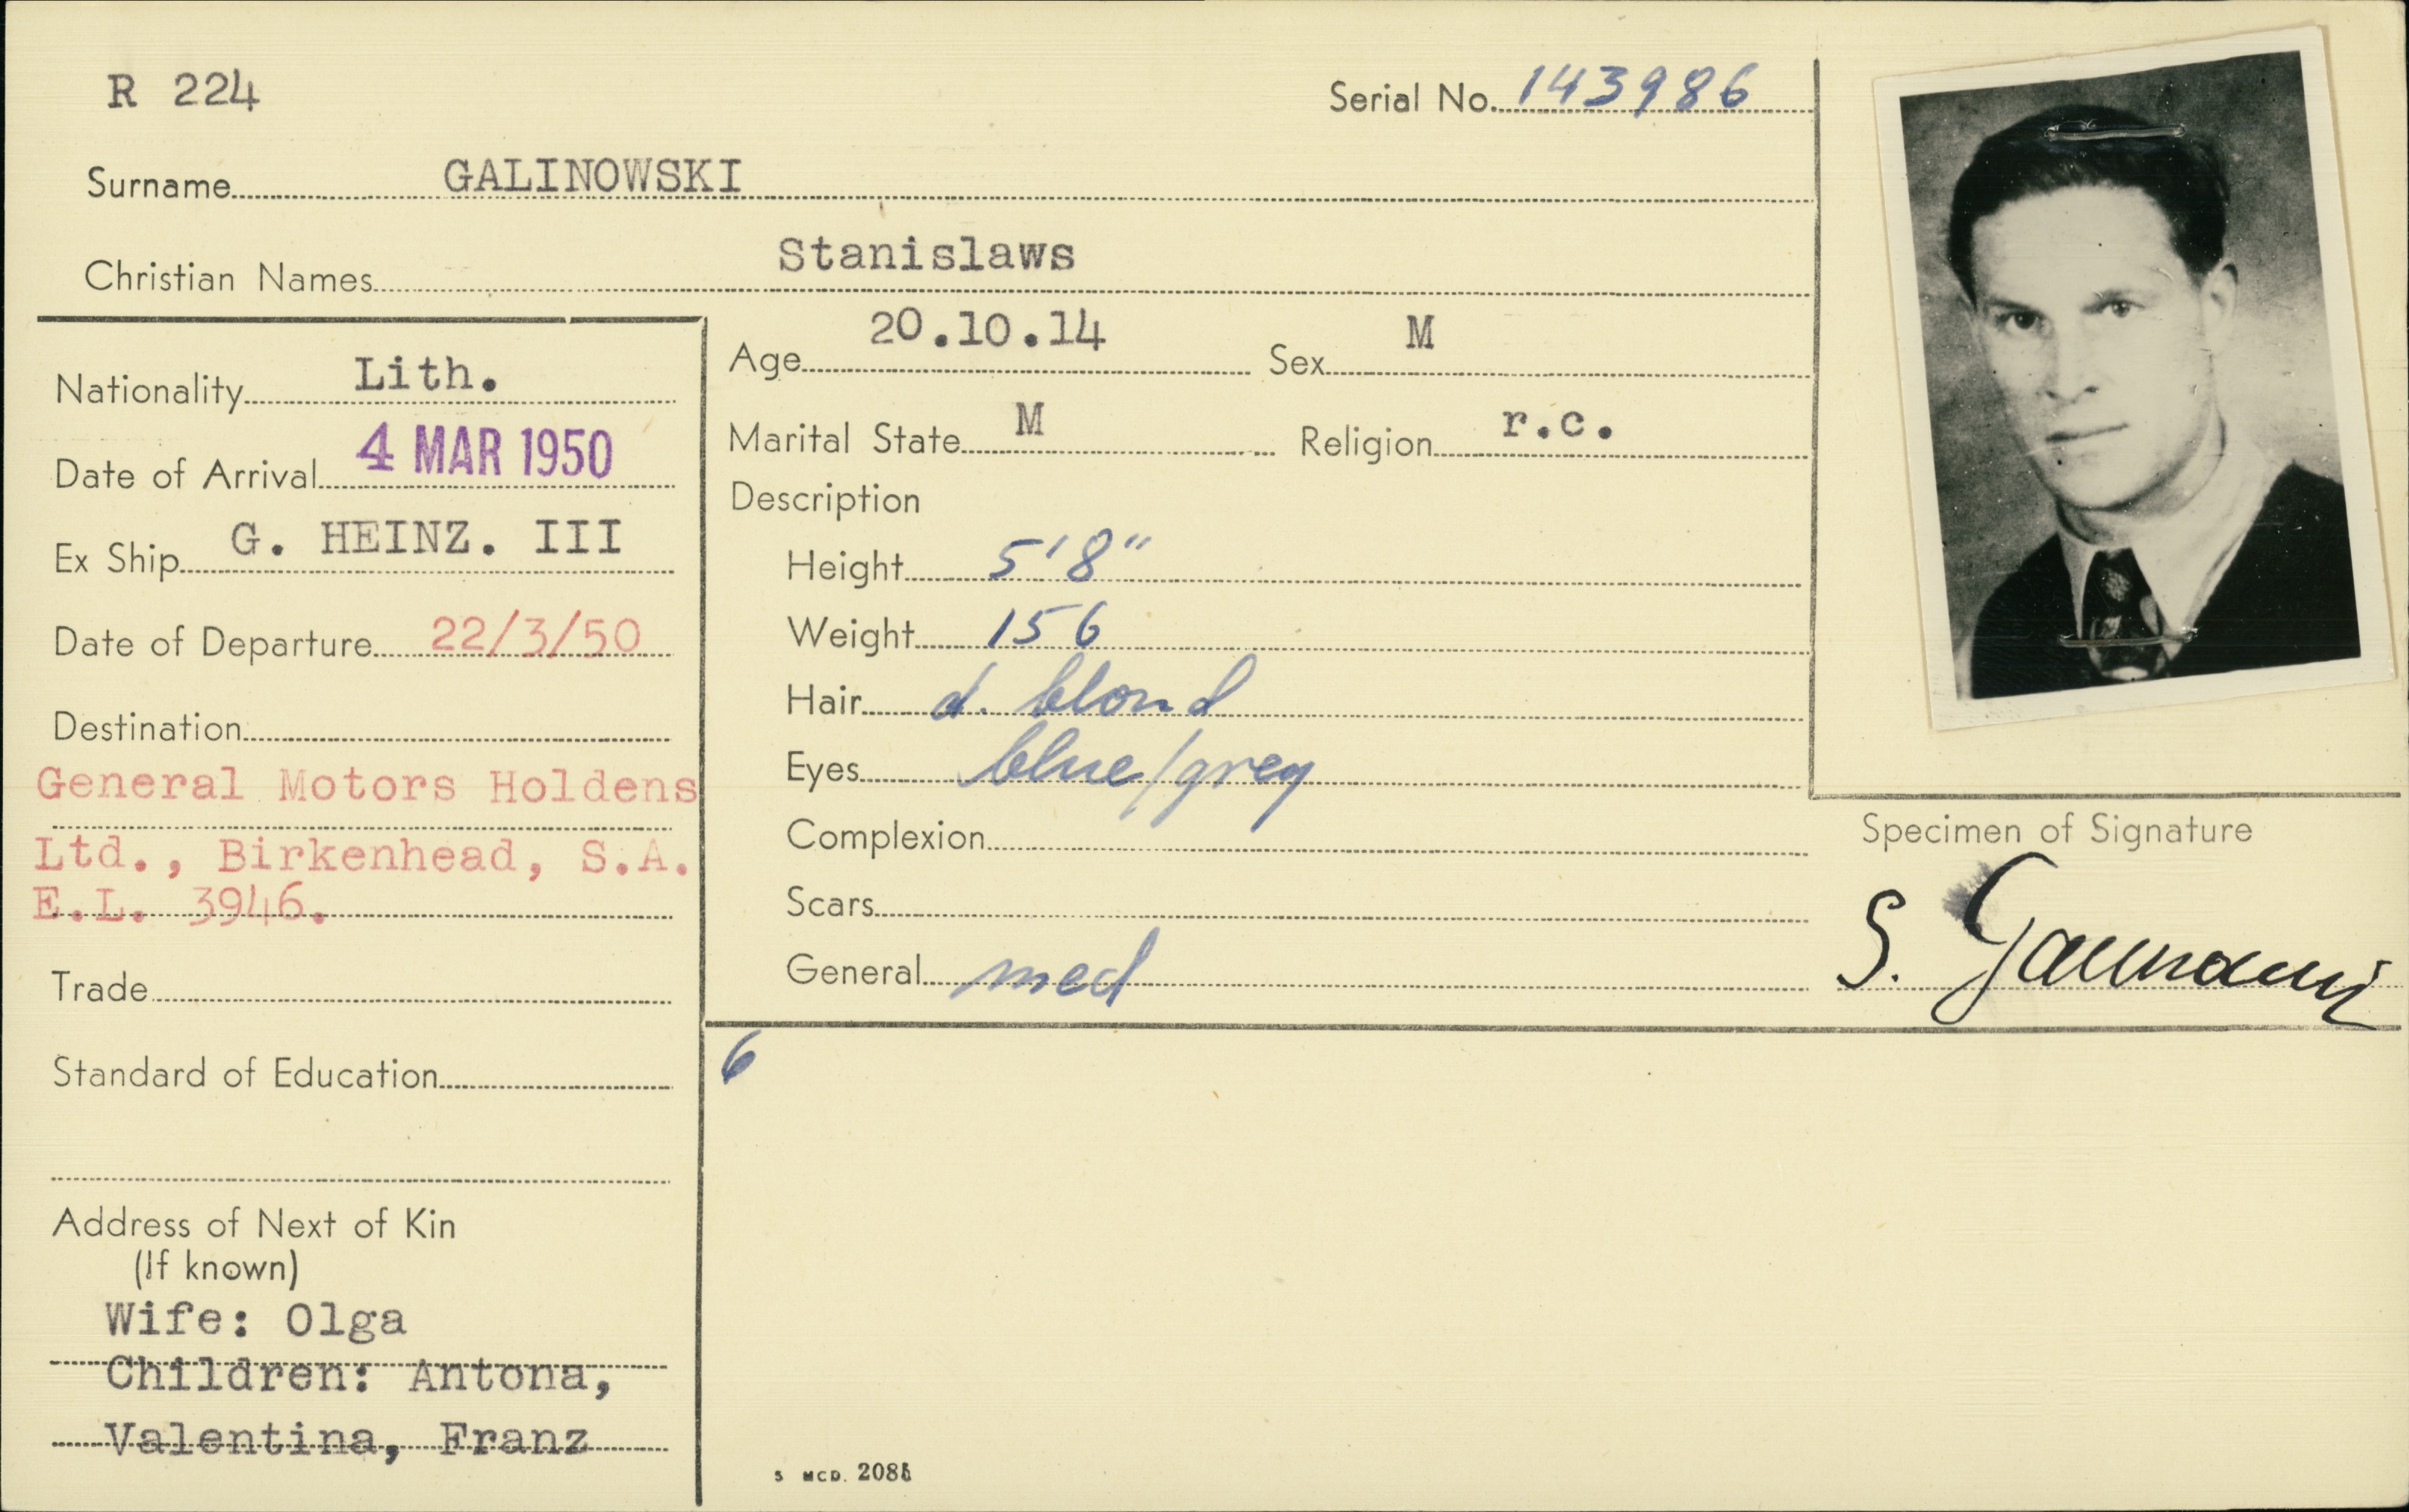 R 224
Serial No. 143986
Surname GALINOWSKI
Christian Names Stanislaws
Nationality Lith.
Date of Arrival 4 MAR 1950
Ex Ship G. HEINZ. III
Date of Departure 22/3/50
Destination
General Motors Holdens
Ltd., Birkenhead, S.A.
E.L. 3946.
Trade
Standard of Education
Address of Next of Kin
(If known)
Wife: Olga
Children: Antona,
Valentina, Franz
Age 20.10.14 Sex M
Marital State M Religion r.c.
Description
Height 5'8"
Weight 156
Hair d. blond
Eyes blue/grey
Complexion
Scars
General med
6
Specimen of Signature
S.
5 MCD.